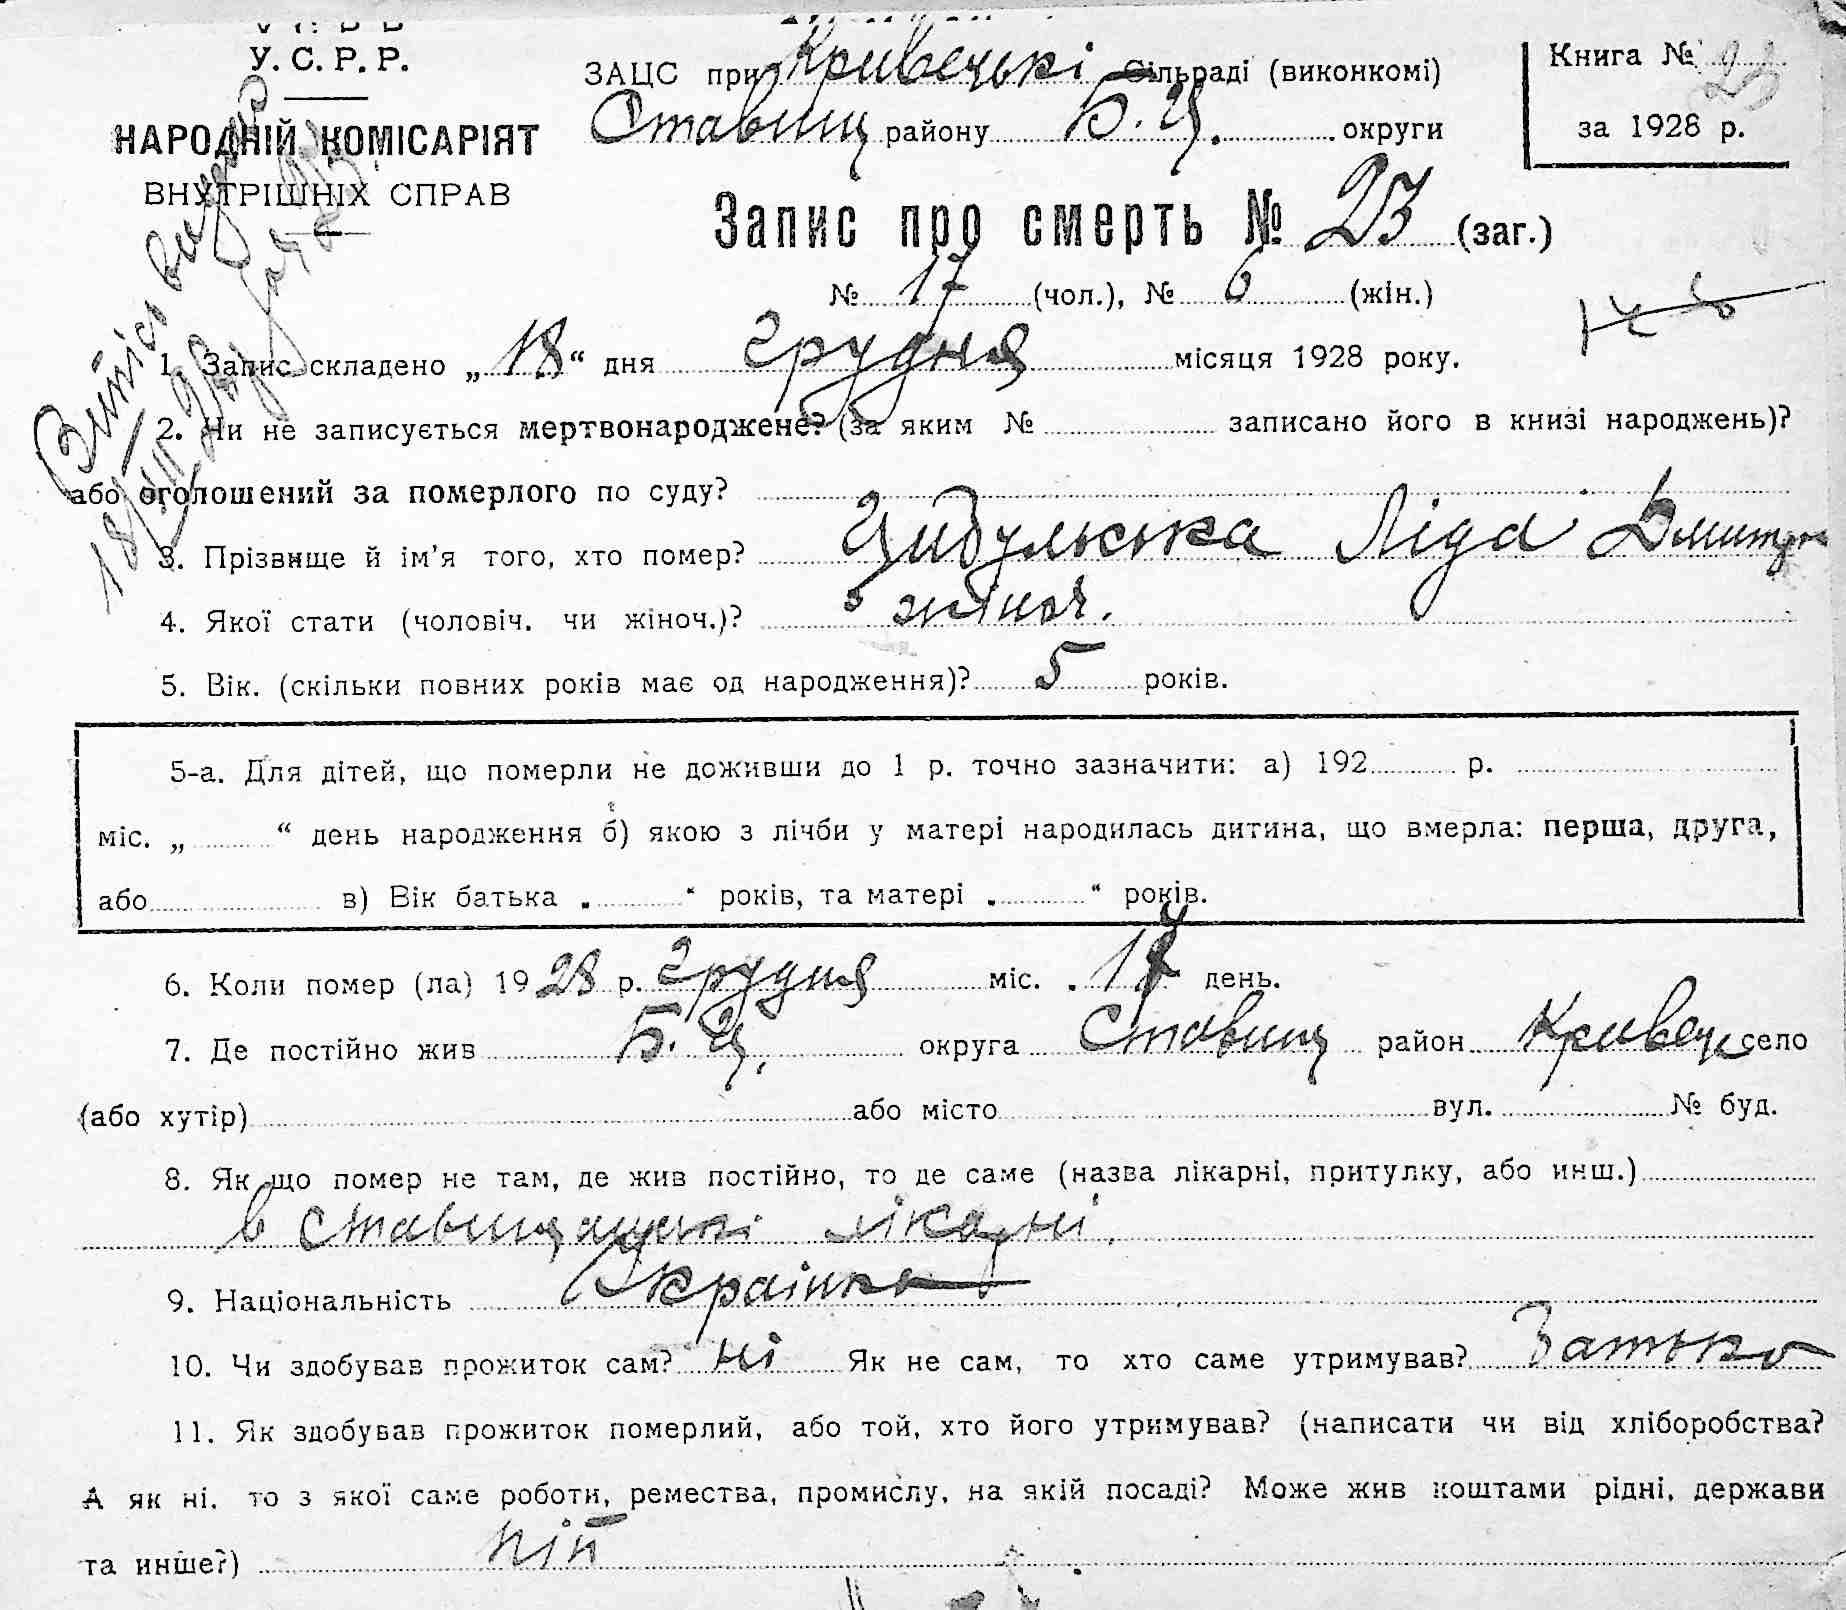 У. С. Р. Р.
НАРОДНІЙ КОМІСАРІЯТ
ВНУТРІШНІХ СПРАВ
ЗАЦС при Кривецькі Сільраді (виконкомі)
Ставищ району Б. Ц. округи
Книга № 23
за 1928 р.
Запис про смерть № 23 (заг.)
№ 17 (чол.), № 6 (жін.)
Витяг видано
1. Запис складено „18“ дня грудня місяця 1928 року.
2. Чи не записується мертвонароджене? (за яким № записано його в книзі народжень)?
або оголошений за померлого по суду?
3. Прізвище й ім’я того, хто помер? Цибульська Ліда Дмитр
4. Якої стати (чоловіч. чи жіноч.)? жіноч.
5. Вік. (скільки повних років має од народження)? 5 років.
5-а. Для дітей, що померли не доживши до 1 р. точно зазначити: а) 192 р.
міс. „ “ день народження б) якою з лічби у матері народилась дитина, що вмерла: перша, друга,
або в) Вік батька „ “ років, та матері „ “ років.
6. Коли помер (ла) 1928 р. грудня міс. 17 день.
7. Де постійно жив Б. Ц. округа Ставищ район Кривец село
(або хутір) або місто вул. № буд.
8. Як що помер не там, де жив постійно, то де саме (назва лікарні, притулку, або инш.)
в Ставищанські лікарні.
9. Національність Українка
10. Чи здобував прожиток сам? ні Як не сам, то хто саме утримував? Батько
11. Як здобував прожиток померлий, або той, хто його утримував? (написати чи від хліборобства?
А як ні, то з якої саме роботи, ремества, промислу, на якій посаді? Може жив коштами рідні, держави
та инше?) піп